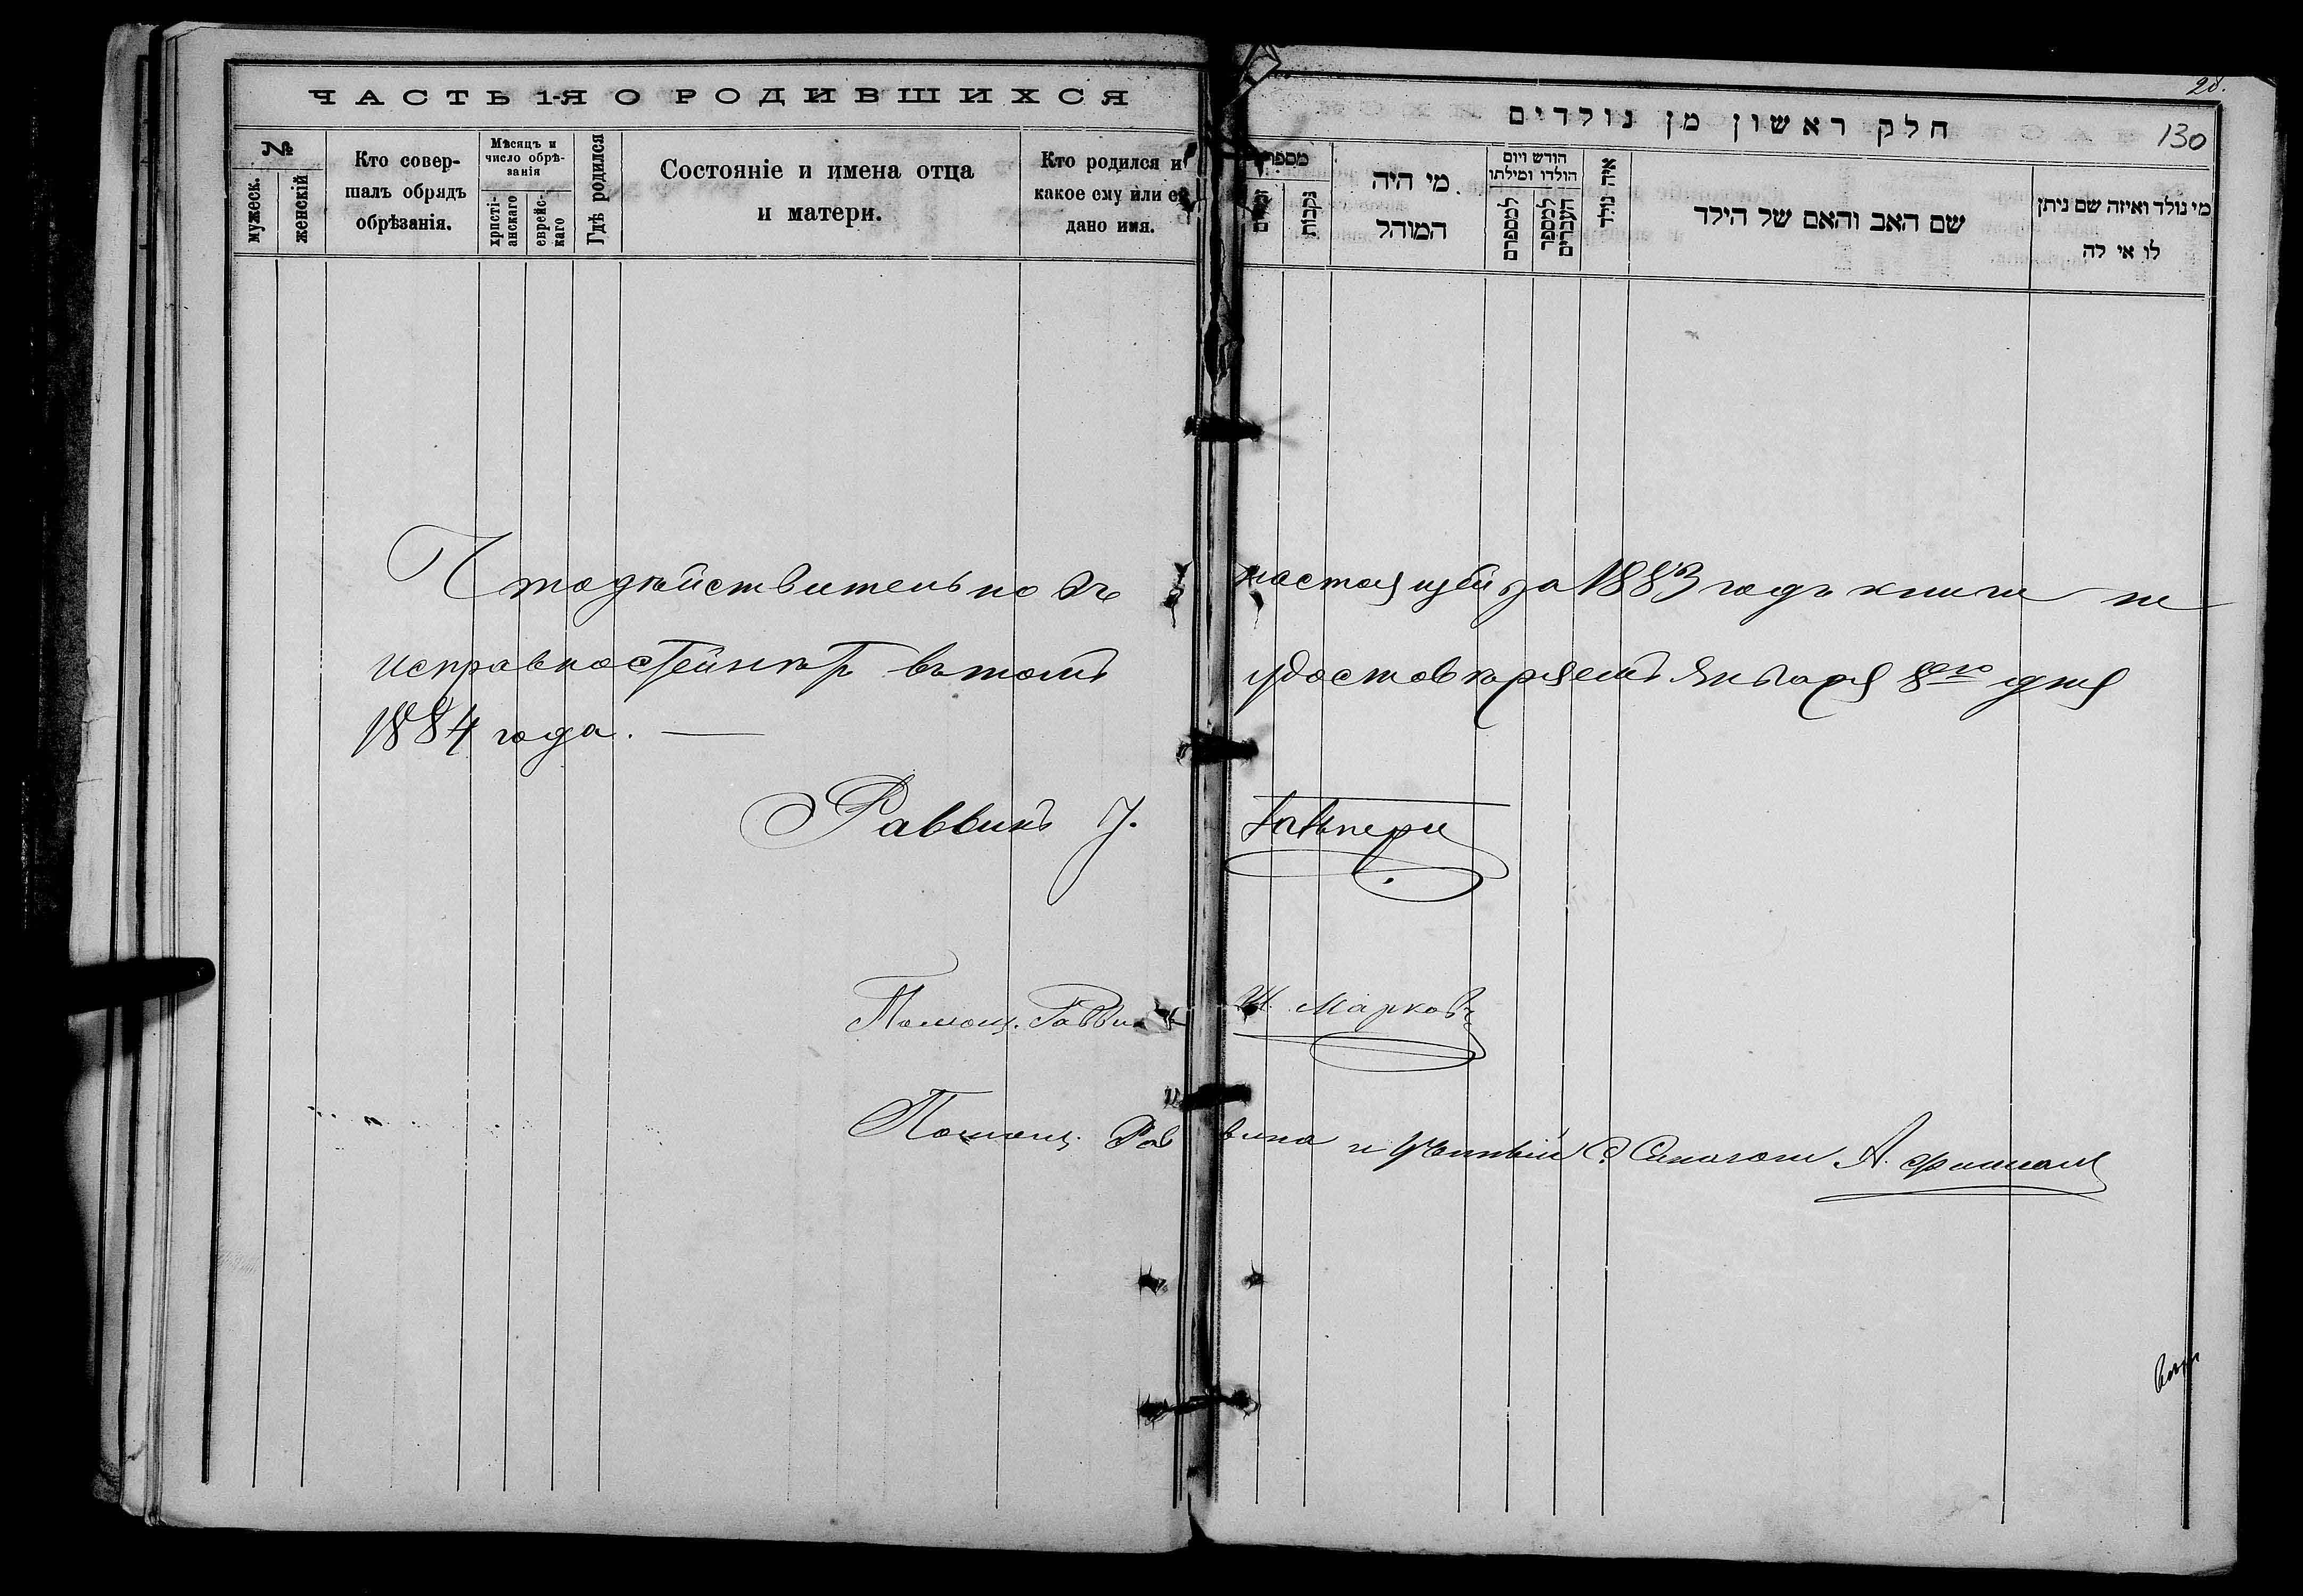 ЧАСТЬ 1-Я О РОДИВШИХСЯ
№
мужеск.
женскій
Кто совер-
шалъ обрядъ
обрѣзанія.
Мѣсяцъ и
число обрѣ-
занія
христі-
анскаго
еврейс-
каго
Гдѣ родился
Состояніе и имена отца
и матери.
Кто родился и
какое ему или ей
дано имя.
28.
חלק ראשון מן נולדים
130
מספר
נקבות
מי היה
המוהל
חודש ויום
הולדו ומילתו
למספרם
למספר
העברים
איה נולד
שם האב והאם של הילד
מי נולד ואיזה שם ניתן
לו או לה
Что дѣйствительно въ настоящей за 1883 годъ книги не
исправностей нѣтъ въ томъ удостовѣряемъ Января 8го дня
1884 года. —
Раввинъ
Помощ. Раввина Марковъ
Помощ. Раввина и Ученый Синагоги А.